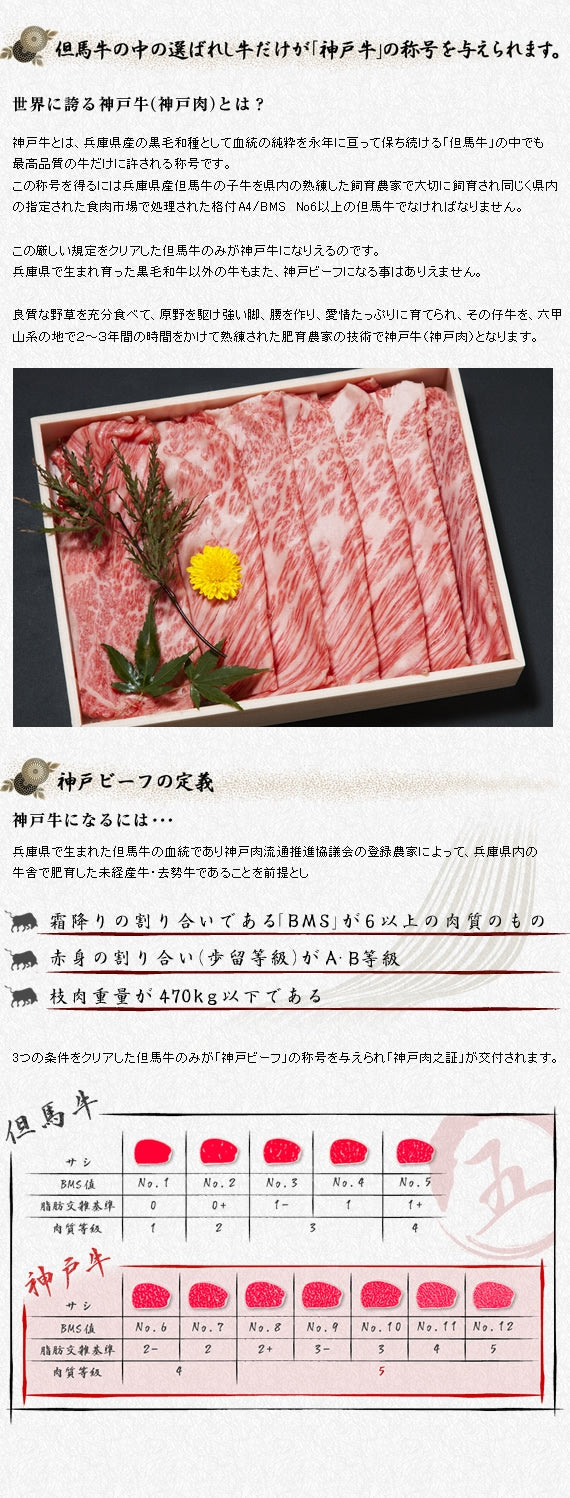 但馬牛の中の選ばれし牛だけが「神戸牛」の称号を与えられます。
世界に誇る神戸牛(神戸肉)とは？
神戸牛とは、兵庫県産の黒毛和種として血統の純粋を永年に亘って保ち続ける「但馬牛」の中でも
最高品質の牛だけに許される称号です。
この称号を得るには兵庫県産但馬牛の子牛を県内の熟練した飼育農家で大切に飼育され同じく県内
の指定された食肉市場で処理された格付A4/BMS No6以上の但馬牛でなければなりません。
この厳しい規定をクリアした但馬牛のみが神戸牛になりえるのです。
兵庫県で生まれ育った黒毛和牛以外の牛もまた、神戸ビーフになる事はありえません。
良質な野草を充分食べて、原野を駆け強い脚、腰を作り、愛情たっぷりに育てられ、その仔牛を、六甲
山系の地で2～3年間の時間をかけて熟練された肥育農家の技術で神戸牛(神戸肉)となります。
神戸ビーフの定義
神戸牛になるには・・・
兵庫県で生まれた但馬牛の血統であり神戸肉流通推進協議会の登録農家によって、兵庫県内の
牛舎で肥育した未経産牛・去勢牛であることを前提とし
霜降りの割り合いである「BMS」が6以上の肉質のもの
赤身の割り合い(歩留等級)がA・B等級
枝肉重量が470kg以下である
3つの条件をクリアした但馬牛のみが「神戸ビーフ」の称号を与えられ「神戸肉之証」が交付されます。
但馬牛
サシ
BMS値 No.1 No.2 No.3 No.4 No.5
脂肪交雑基準 0 0+ 1- 1 1+
肉質等級 1 2 3 4
五
神戸牛
サシ
BMS値 No.6 No.7 No.8 No.9 No.10 No.11 No.12
脂肪交雑基準 2- 2 2+ 3- 3 4 5
肉質等級 4 5